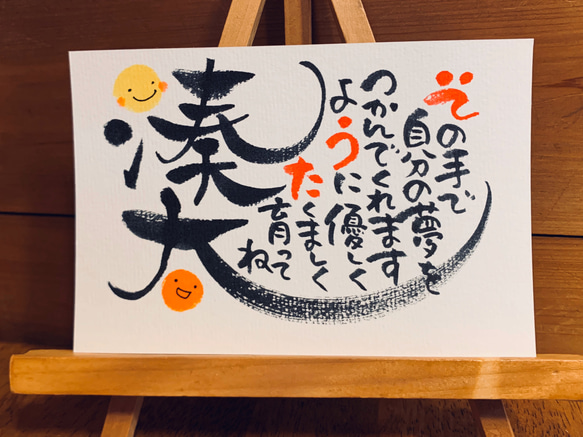 その手で
自分の夢を
つかんでくれます
ように優しく
たくましく
育って
ね
湊大